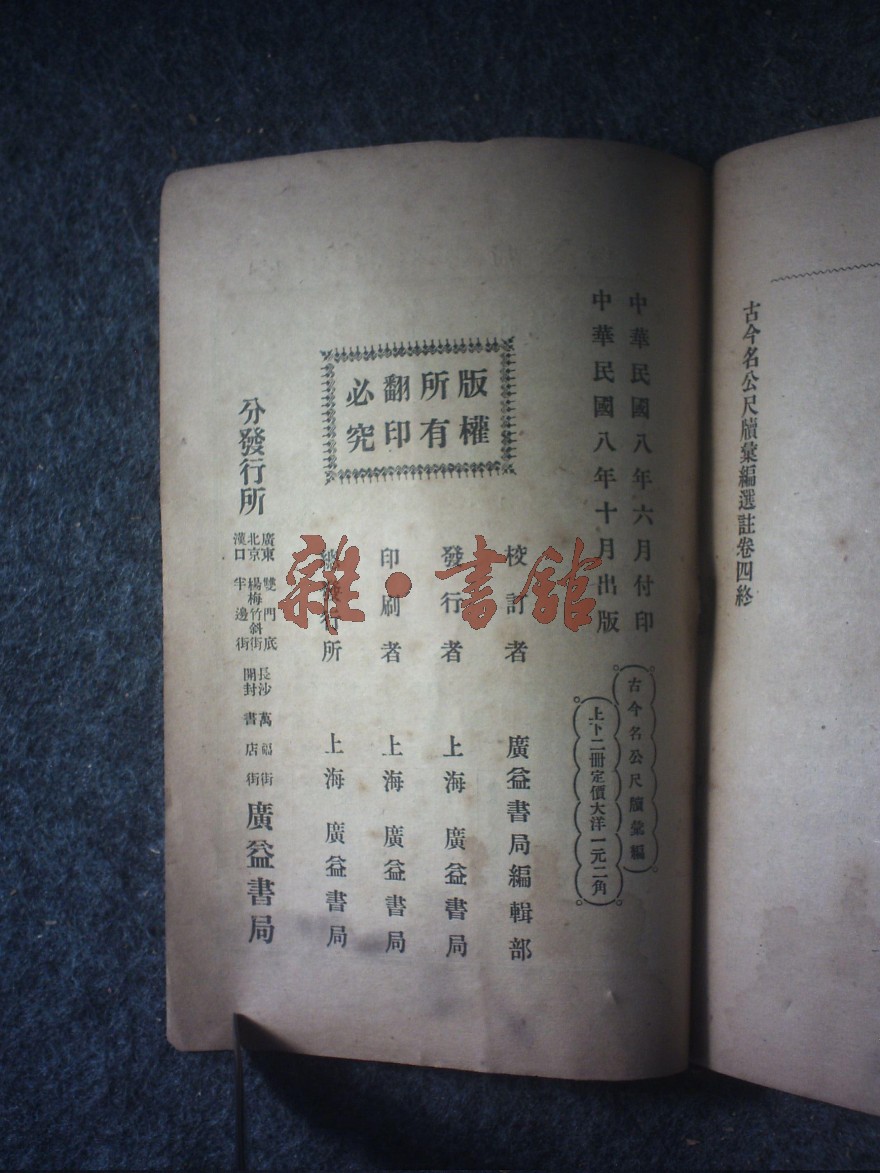 古今名公尺牘彙編選註卷四終
中華民國八年六月付印
中華民國八年十月出版
古今名公尺牘彙編
上下二冊定價大洋一元二角
版權
所有
翻印
必究
校訂者 廣益書局編輯部
發行者 上海 廣益書局
印刷者 上海 廣益書局
總發行所 上海 廣益書局
分發行所
廣東 雙門底
北京 楊梅竹斜街
漢口 半邊街
長沙 萬福街
開封 書店街
廣益書局
雜·書館